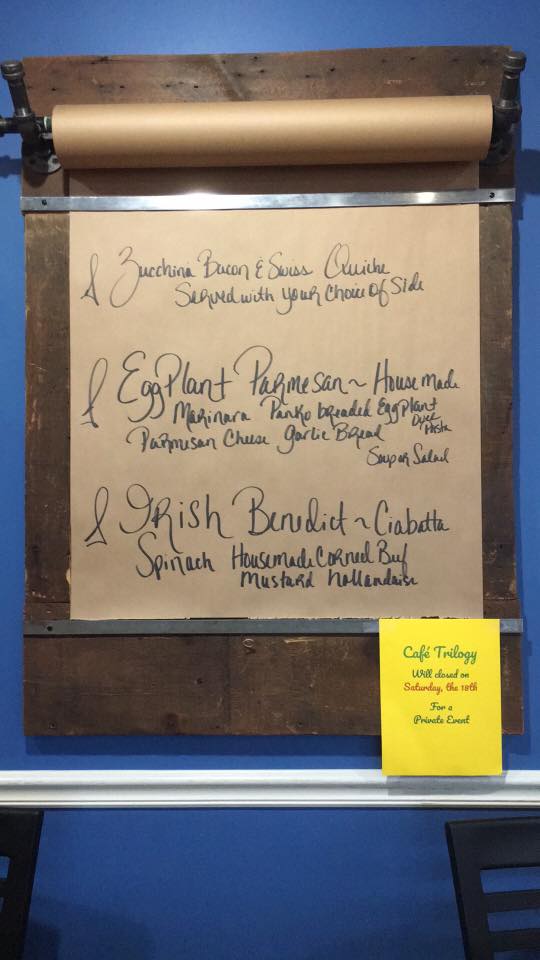 Zucchini Bacon & Swiss Quiche
Served with your choice of Side
EggPlant Parmesan ~ Housemade
Marinara Panko breaded EggPlant
over Pasta
Parmesan Cheese garlic Bread
Soup or Salad
IRish Benedict ~ Ciabatta
Spinach Housemade Corned Beef
Mustard hollandaise
Café Trilogy
Will closed on
Saturday, the 18th
For a
Private Event